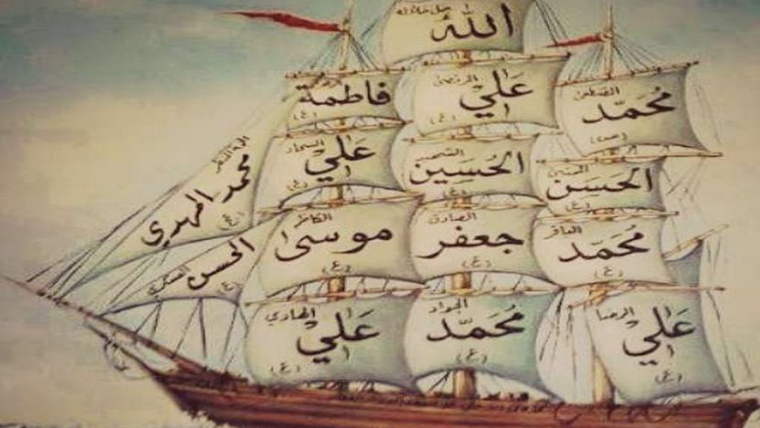 الله جل جلاله
محمد المصطفى (ص)
علي المرتضى (ع)
فاطمة (ع)
الحسن (ع)
الحسين (ع)
علي السجاد (ع)
محمد الباقر (ع)
جعفر الصادق (ع)
موسى الكاظم (ع)
علي الرضا (ع)
محمّد الجواد (ع)
علي الهادي (ع)
الحسن العسكري (ع)
محمد المهدي (ع)